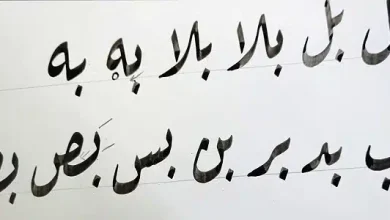 بل بلا بلا به به
بد بر بن بس بص